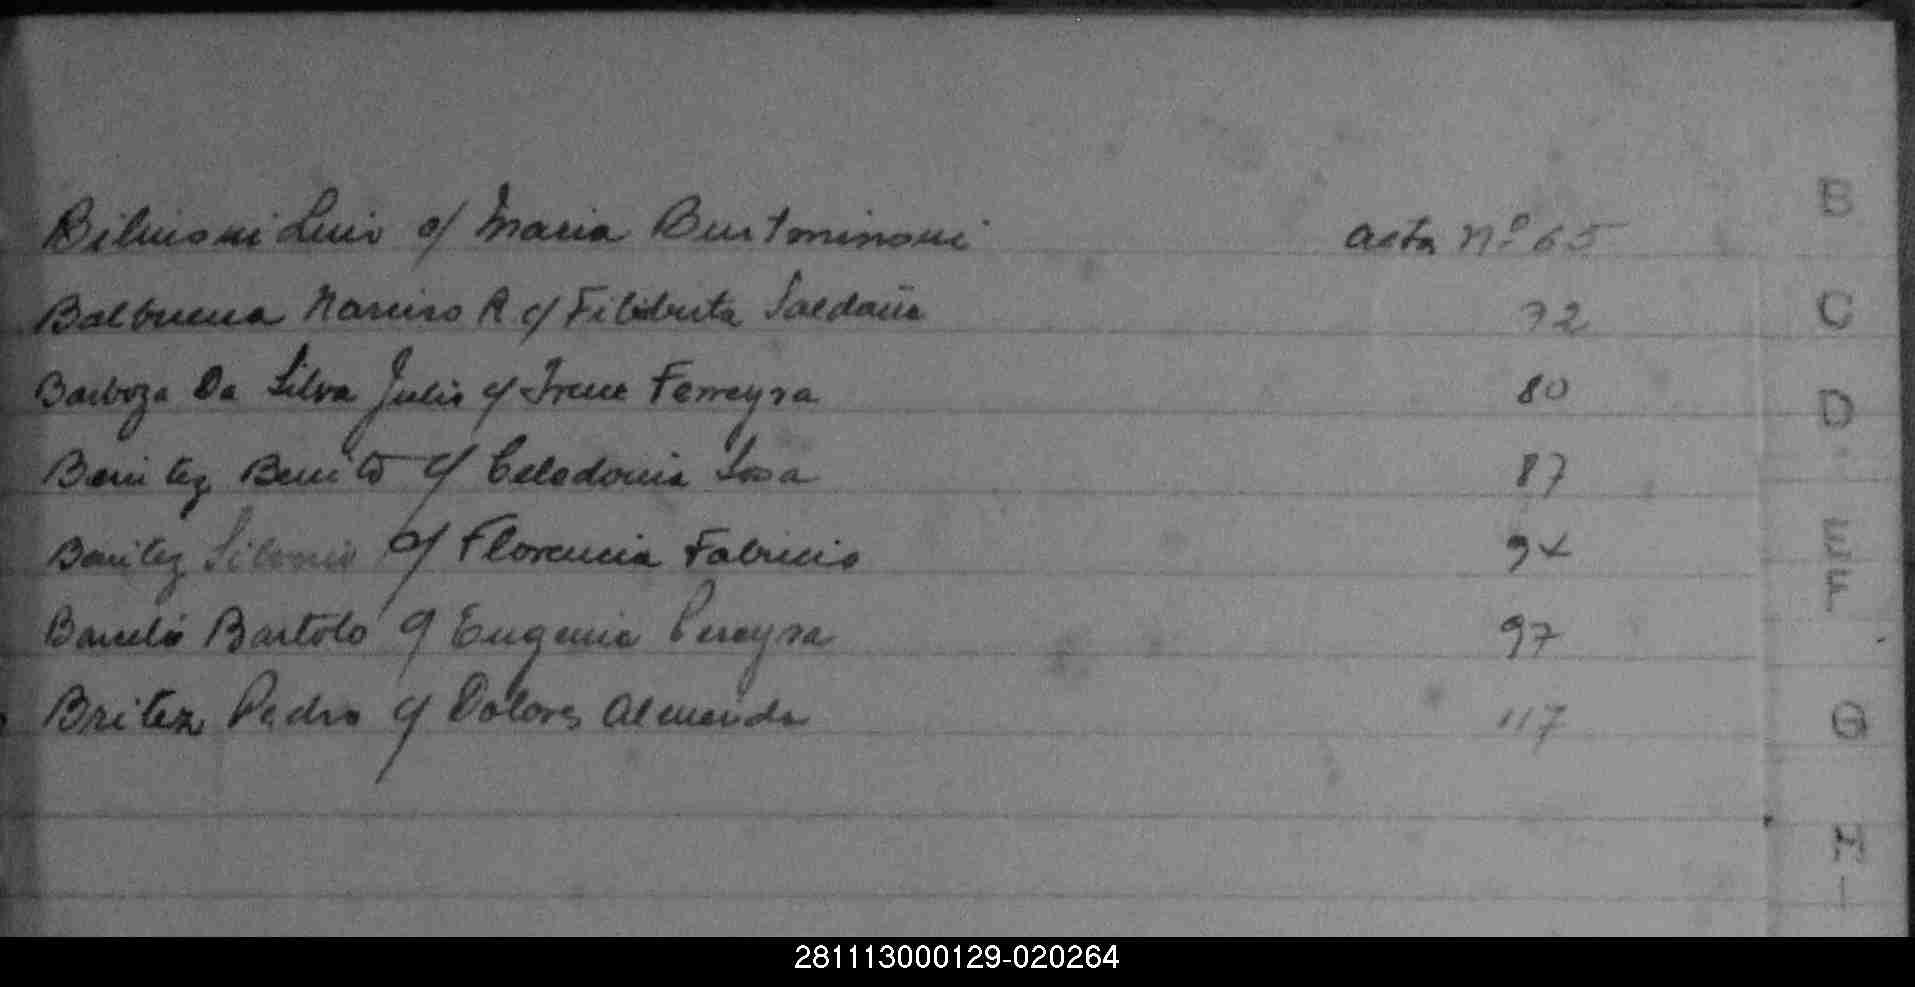 Luis c/ Maria acta nº 65
B
Balbuena Narciso R c/ Filiberta Saldaña 72
C
Barboza Da Silva Julio c/ Irene Ferreyra 80
D
Benitez Benito c/ Celedonia Sosa 87
Benitez Silverio c/ Florencia Fabricio 94
E
F
Barceló Bartolo c/ Eugenia Pereyra 97
Britez Pedro c/ Dolores Almenda 117
G
H
I
281113000129-020264